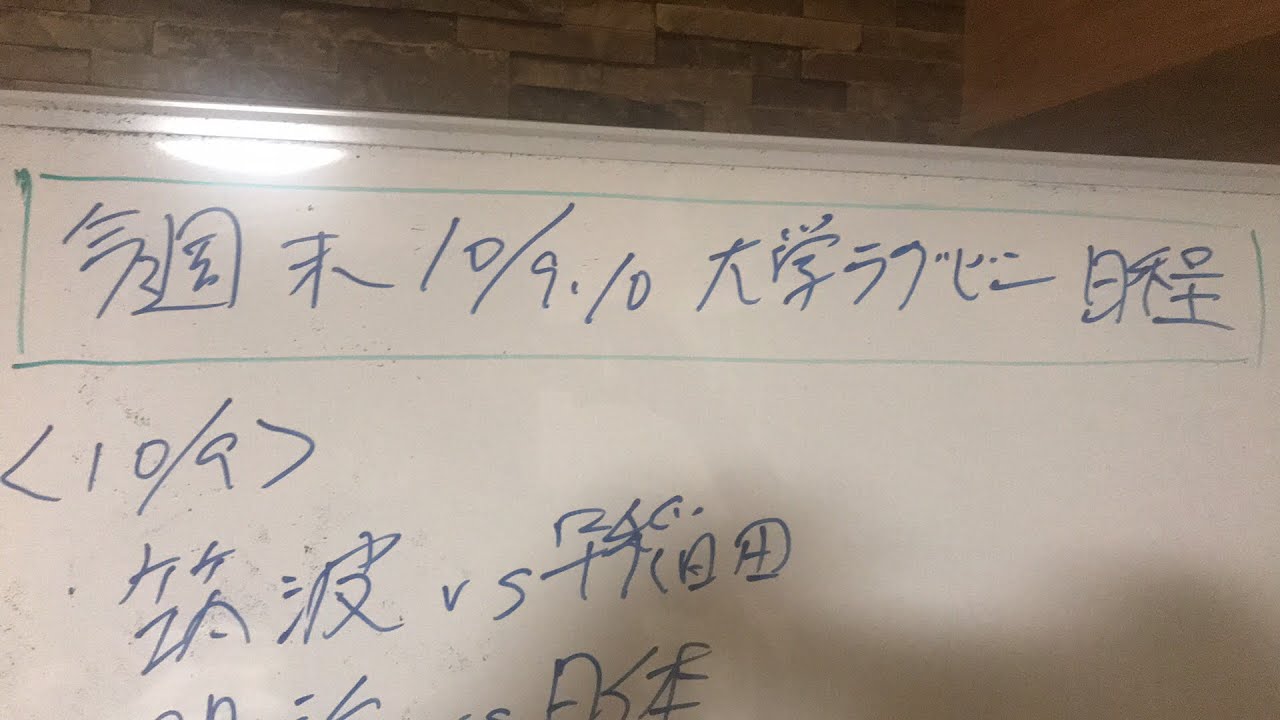 今週末10/9.10大学ラグビー日程
<10/9>
・筑波vs早稲田
明治vs日体